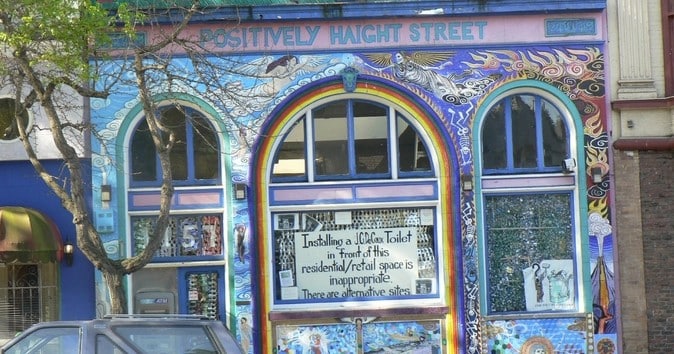 POSITIVELY HAIGHT STREET
157
Installing a J.C.DeCaux Toilet
in front of this
residential/retail space is
inappropriate.
There are alternative sites